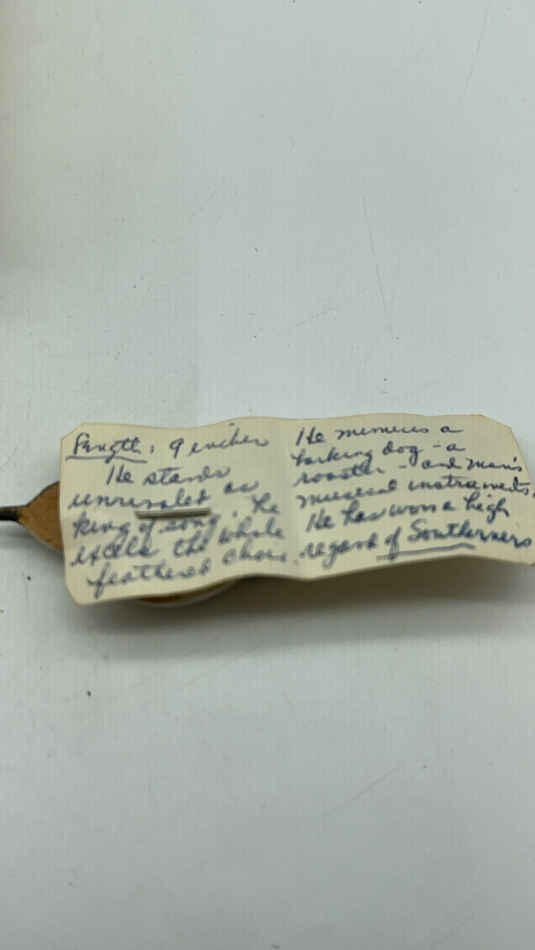 Length: 9 inches
He stands
unrivaled as
king of song. He
excels the whole
feathered choir.
He mimics a
barking dog - a
rooster - and man's
musical instruments.
He has won a high
regard of Southerners